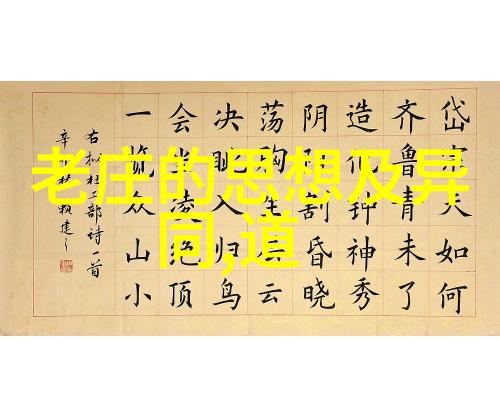 老庄的思想及异
同,道
岱宗夫如何
齐鲁青未了
造化钟神秀
阴割昏晓
荡胸生云
决眦入归鸟
会当凌绝顶
一览众山小
右杜工部诗一首
辛秋赖建